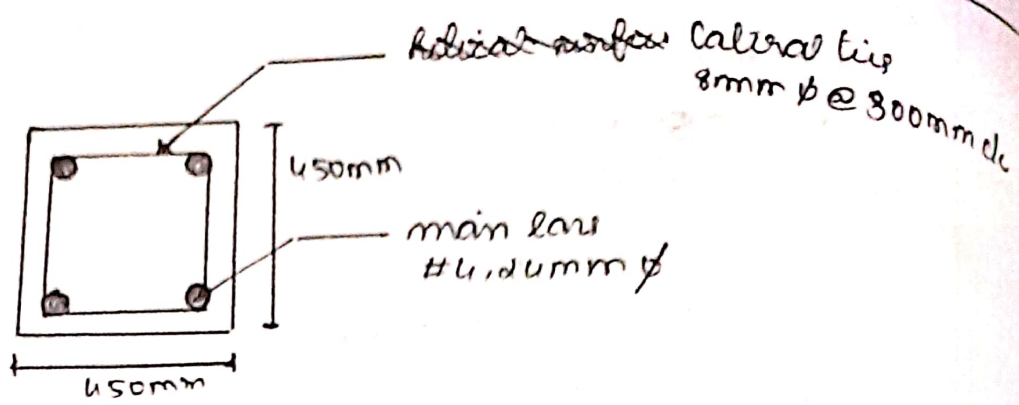 Lateral ties
8mm ϕ @ 300mm c/c
450mm
main bars
#4, 24mm ϕ
450mm